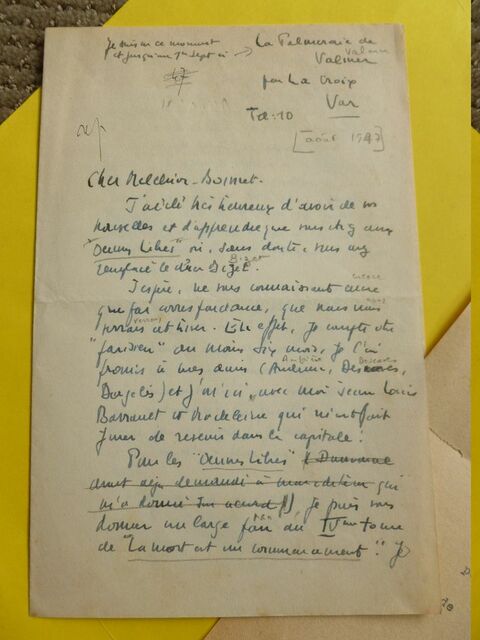 Je suis en ce moment
et jusqu'au 1er Sept à →
La Palmeraie de
Valmer
Valmer
par La Croix
Var
47
Tel: 10
[août 1947]
rep
Cher Melchior-Bonnet.
J'ai été très heureux d'avoir de vos
nouvelles et d'apprendre que vous êtes aux
"Œuvres Libres" où, sans doute, vous avez
remplacé le cher Dizet.
Bizet
J'espère, ne vous connaissant encore
encore
que par correspondance, que nous nous
nous
verrons cet hiver. En effet, je compte être
verrons
"parisien" au moins six mois, je l'ai
promis à mes amis (Andrieu, Descaves,
Ambrière Descaves
Dorgelès) et j'ai ici, avec moi Jean Louis
Barrault et Madeleine qui m'ont fait
jurer de revenir dans la capitale!
Pour les "Œuvres Libres"
avait déjà demandé à mon éditeur qui
m'a donné son accord), je puis vous
donner un large
du IVème tome
de "La mort est un commencement". Je